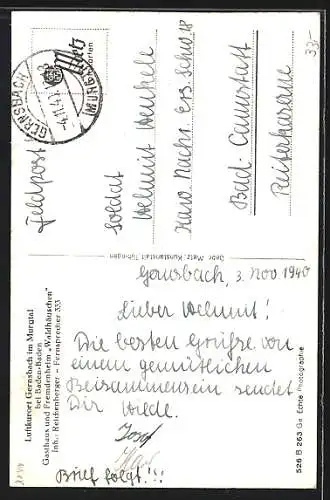 Luftkurort Gernsbach im Murgtal
bei Baden-Baden
Gasthaus und Fremdenheim „Waldhäuschen"
Inh.: Reiffenberger - Fernsprecher 333
Gernsbach, 3. Nov 1940
Lieber Helmut!
Die besten Grüsse von
einem gemütlichen
Beisammensein sendet
Dir
Josef
Brief folgt!!!
526 B 263 Gs Echte Photographie
Gebr. Metz, Kunstanstalt Tübingen
Feldpost
GERNSBACH
(MURGTAL)
4.11.40
Metz
Soldat
Helmut
Kaw. Nachr. Ers. Schw. 18
Bad-Cannstatt
Reiterkaserne
33.-